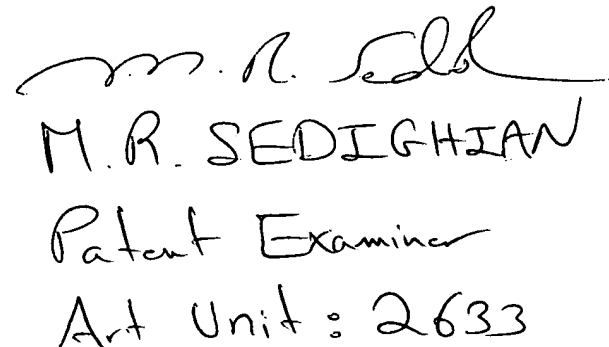 M. R.
M.R. SEDIGHIAN
Patent Examiner
Art Unit: 2633